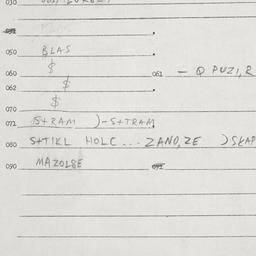 030
050 BLAS
060 $ 061 - Q PUZI, R
062 $
070 $
071 S+RAM )-S+TRAM
080 S+TIKL HOLC... ZANO, ZE ) SKAP
090 MAZOLBE